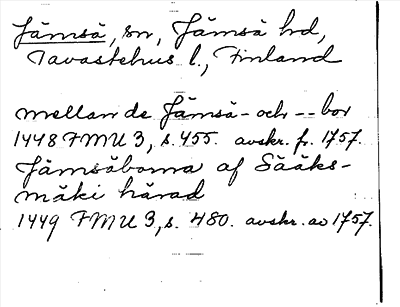 Jämsä, sn, Jämsä hd,
Tavastehus l., Finland
mellan de Jämsä - och -- bor
1448 FMU 3, s. 455. avskr. fr. 1757.
Jämsäboma af Sääks-
mäki härad
1449 FMU 3, s. 480. avskr. av 1757.